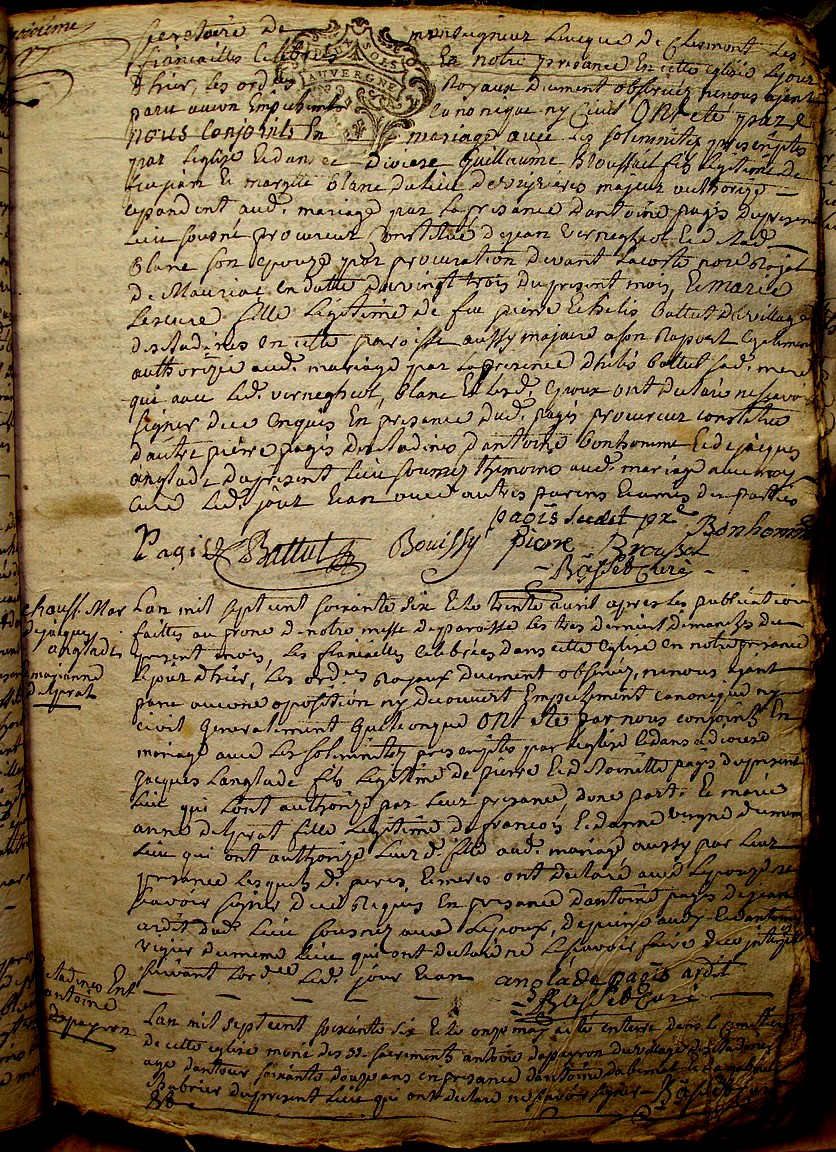 secretaire de monseigneur Leveque de Clermont Les
fiancailles celebrées En notre presance En cette eglise Le jour
d'hier, les ordces Royaux duement observés ne nous ayent
paru aucun Empechement canonique ny Civil Ont eté par
nous Conjoints En mariage avec les solemnites prescriptes
par leglise Et dans ce diocese Guillaume Broussal fils legitime de
jean Et margte Blanc du lieu de majeur authorizé
cependent aud. mariage par La presance dantoine pagis du present
Lieu sousné procureur Constitué de jean verneghol Et d
Blanc son Epouze par procuration devant Lacoste nore Royal
de Mauriac En datte du vingt trois du present mois, Et marie
Lescure fille Legitime de feu pierre Et helis Battut du village
des tadines En cette paroisse aussy majeure a son Raport Egalement
authorizée aud. mariage par La presence dhelis Battut sad. mere
qui avec Led. verneghol, blanc Et Lesd. Epoux ont declaré ne scavoir
signer de ce Enquis En presance dud. pagis procureur constitué
dautre pierre pagis des tadines dantoine bonhomme Et de jacques
anglade du present Lieu soussnez themoins aud. mariage avec moy
Curé Led. jour Et an avec autres parens Et amis des parties
pagis pr Bonhomme
Pagis Battut Bouissy pierre Brousal
Basset Curé
Mar
de jacques
anglade
Et marianne
delprat
Lan mil sept cent soixante dix Et le trente avril apres les publications
faittes au prone de notre messe de paroisse les trois derniers dimanches du
present mois, les fiancailles celebrées dans cette Eglise En notre presance
le jour d'hier, Les ordces Royaux duement observés, ne nous ayant
paru aucune oposition ny decouvert Empechement canonique ny
civil generalement quelconque Ont eté par nous conjoints En
mariage avec Les solemnites prescriptes par leglise Et dans ce diocese
jacques Langlade fils Legitime de pierre Et d'Antoinette pagis du present
Lieu qui Lont authorizé par Leur presance, dune part. Et marie
anne delprat fille Legitime de francois Et danne vergne du meme
Lieu qui ont authorizé Leurd. fille aud. mariage aussy par Leur
presance Lesquels d. peres Et meres ont declaré avec Lepouze ne
scavoir signer de ce Requis En presance dantoine pagis de jean
ardit dud. Lieu sousnez avec Lepoux, de aussy Et dantoine
vigier du meme Lieu qui ont declaré ne Le scavoir faire de ce interpellés
suivant Lordce Led. jour Et an anglade pagis ardit
Basset Curé
tadines Ent
antoine
dapeyron
Lan mil sept cent soixante dix Et le onze may a eté enterré dans le cimetiere
de cette eglise munie des sts sacrements antoine dapeyron du village des tadines
agé dantour soixante douze ans en presance dantoine dabernat et
Chabrier du present Lieu qui ont declaré ne scavoir signer Basset Curé